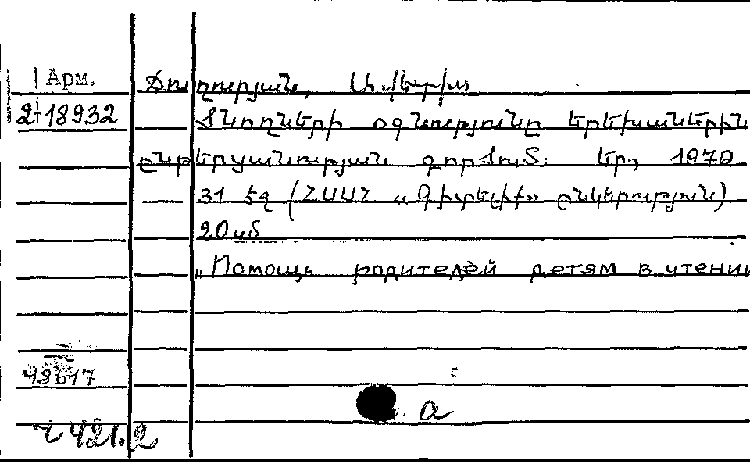 Арм.
2-18932
Ծնողների օգնությունը երեխաներին
ընթերցանության գործում. Եր., 1970
31 էջ (ՀՍՍՀ «Գիտելիք» ընկերություն)
20 սմ
„Помощь родителей детям в чтении
49617
a
421.2